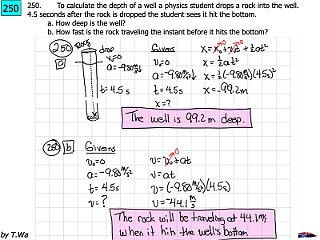 250
250. To calculate the depth of a well a physics student drops a rock into the well.
4.5 seconds after the rock is dropped the student sees it hit the bottom.
a. How deep is the well?
b. How fast is the rock traveling the instant before it hits the bottom?
250 a Rock drop
v₀=0
a=-9.80 m/s²
t=4.5s
Givens
v₀=0
a=-9.80 m/s²
t=4.5s
x=?
x=x₀+v₀t+½at²
x=½at²
x=½(-9.80 m/s²)(4.5s)²
x=-99.2m
The well is 99.2m deep.
250 b Givens
v₀=0
a=-9.80 m/s²
t=4.5s
v=?
v=v₀+at
v=at
v=(-9.80 m/s²)(4.5s)
v=-44.1 m/s
The rock will be traveling at 44.1 m/s
when it hits the well's bottom
by T.Wa